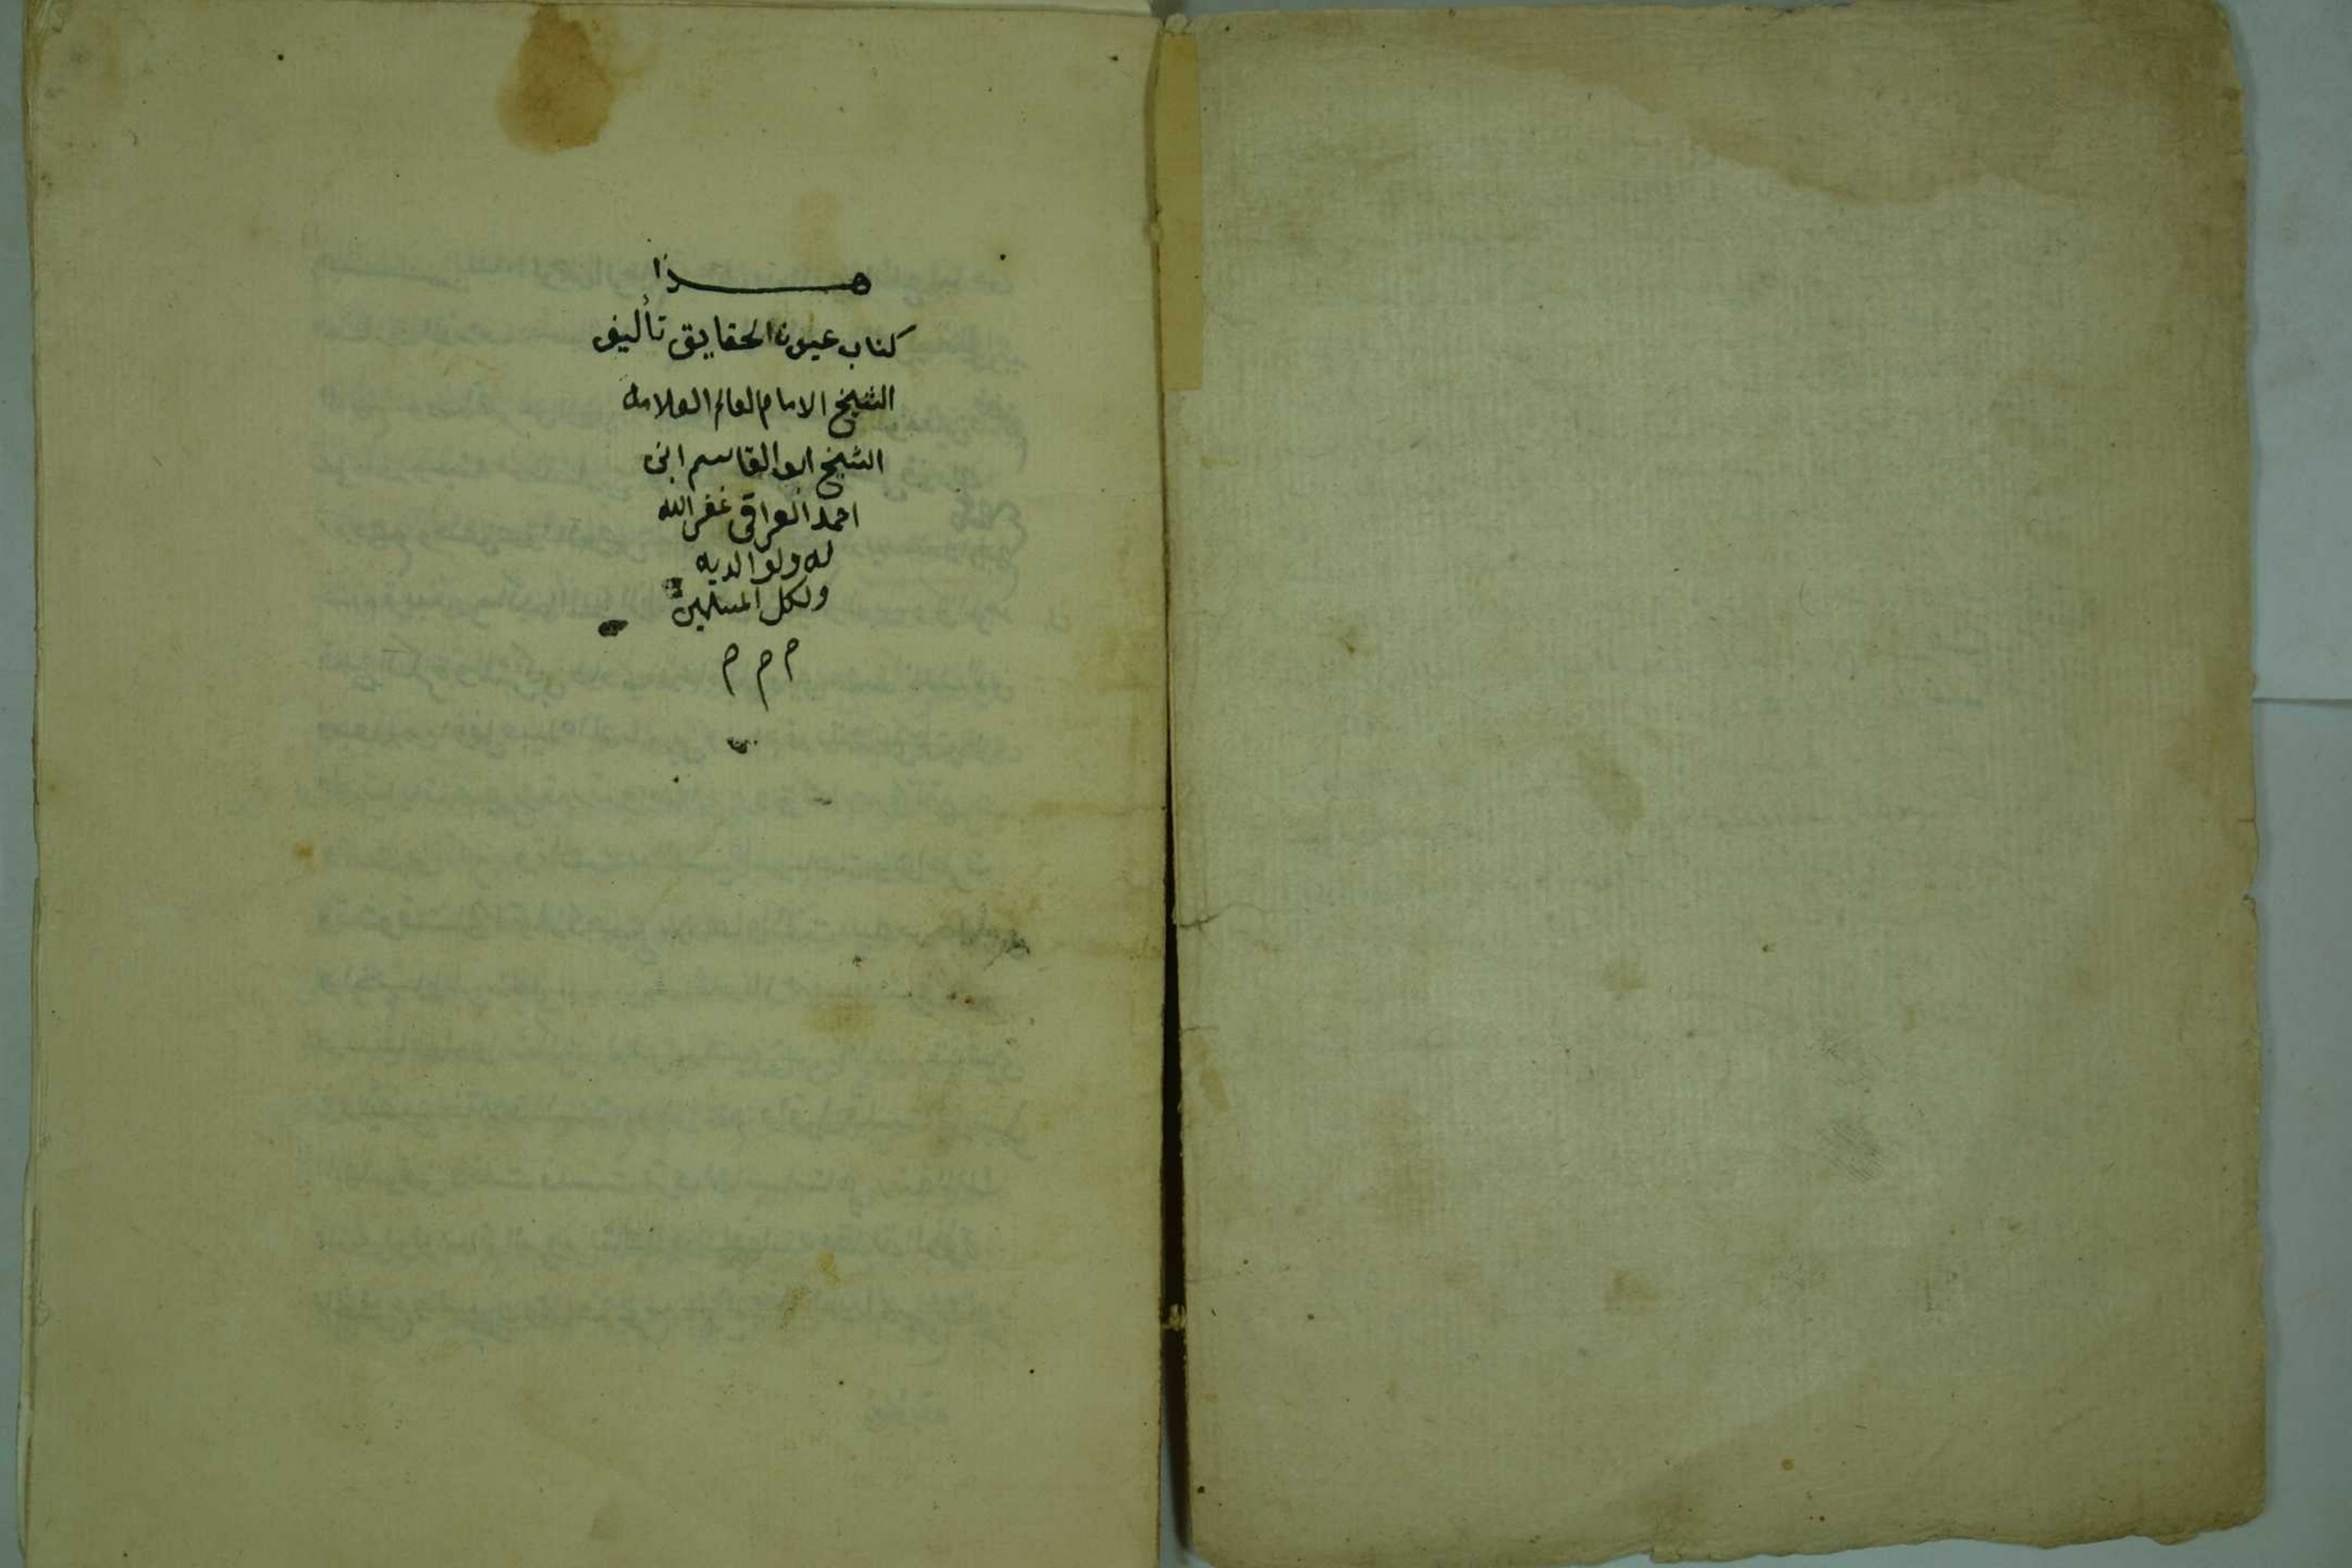 هذا
كتاب عيون الحقايق تأليف
الشيخ الامام العالم العلامه
الشيخ ابو القاسم ابن
احمد العراقي غفر الله
له ولوالديه
ولكل المسلمين
م م م